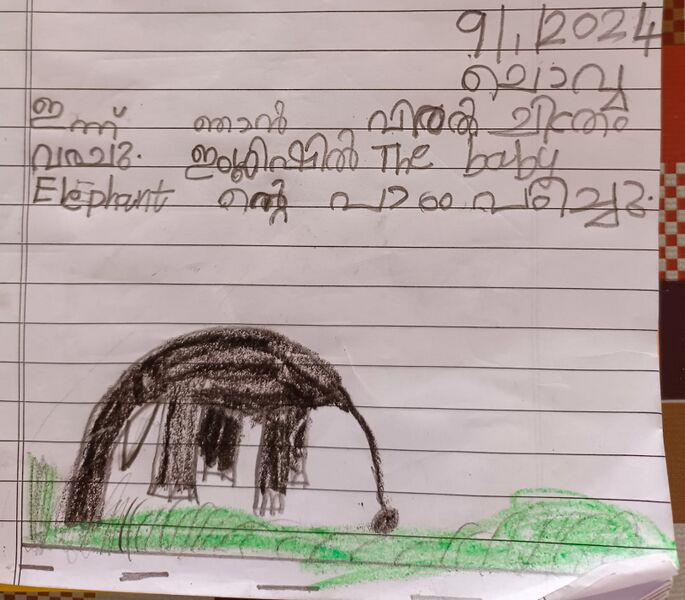 9/1/2024
ചൊവ്വ
ഇന്ന് ഞാൻ വിരൽ ചിത്രം
വരച്ചു. ഇംഗ്ലീഷിൽ The baby
Elephant ന്റെ പാഠം പഠിച്ചു.